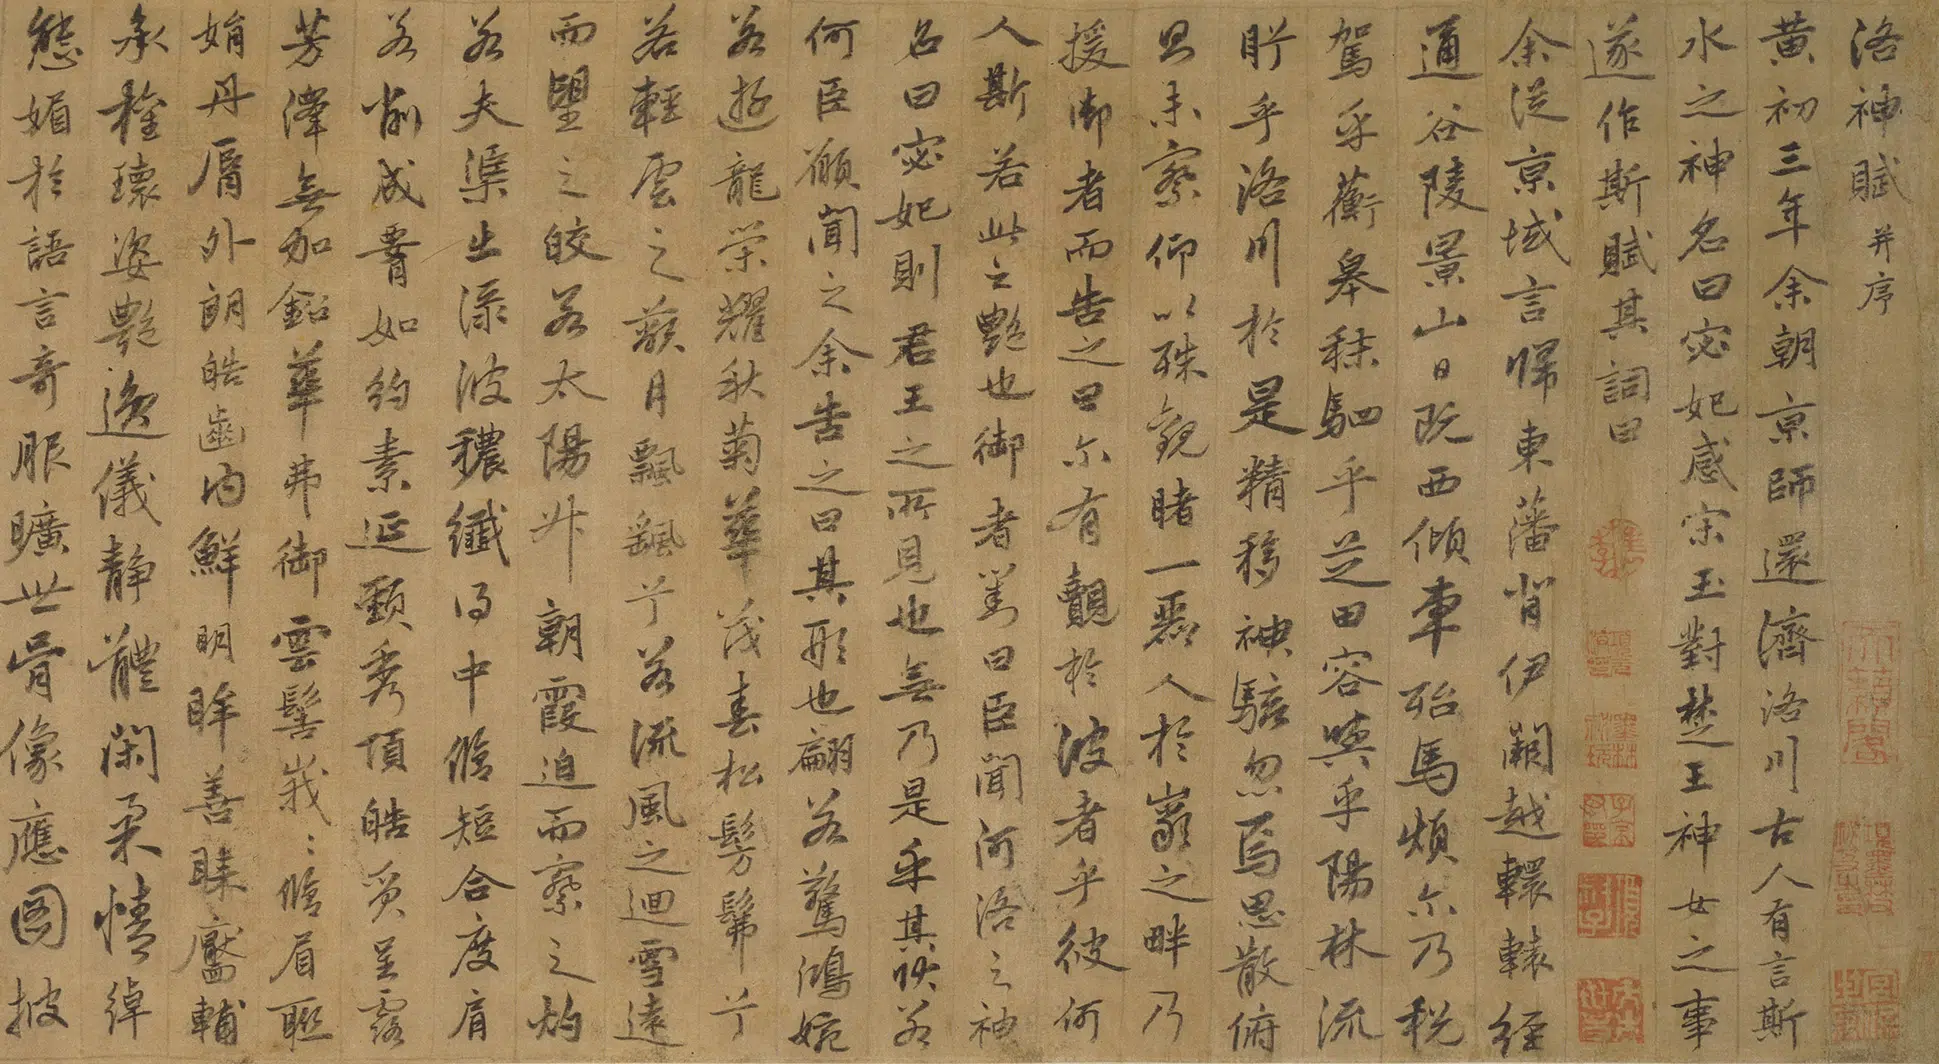 洛神賦并序
黄初三年余朝京師還濟洛川古人有言斯
水之神名曰宓妃感宋玉對楚王神女之事
遂作斯賦其詞曰
余從京域言歸東藩背伊闕越轘轅經
通谷陵景山日既西傾車殆馬煩尓乃税
駕乎蘅皋秣駟乎芝田容與乎陽林流
盻乎洛川於是精移神駭忽焉思散俯
則未察仰以殊觀睹一麗人於巖之畔乃
援御者而告之曰尓有覿於彼者乎彼何
人斯若此之艷也御者對曰臣聞河洛之神
名曰宓妃則君王之所見也無乃是乎其狀若
何臣願聞之余告之曰其形也翩若驚鴻婉
若遊龍榮耀秋菊華茂春松髣髴兮
若輕雲之蔽月飄飖兮若流風之迴雪遠
而望之皎若太陽升朝霞迫而察之灼
若夫渠出渌波穠纖得中脩短合度肩
若削成署如約素延頸秀項皓質呈露
芳澤無加鉛華弗御雲髻峩〻脩眉聯
娟丹脣外朗皓齒内鮮明眸善睞靨輔
承權瓌姿艷逸儀静體閑柔情綽
態媚於語言奇服曠世骨像應圖披